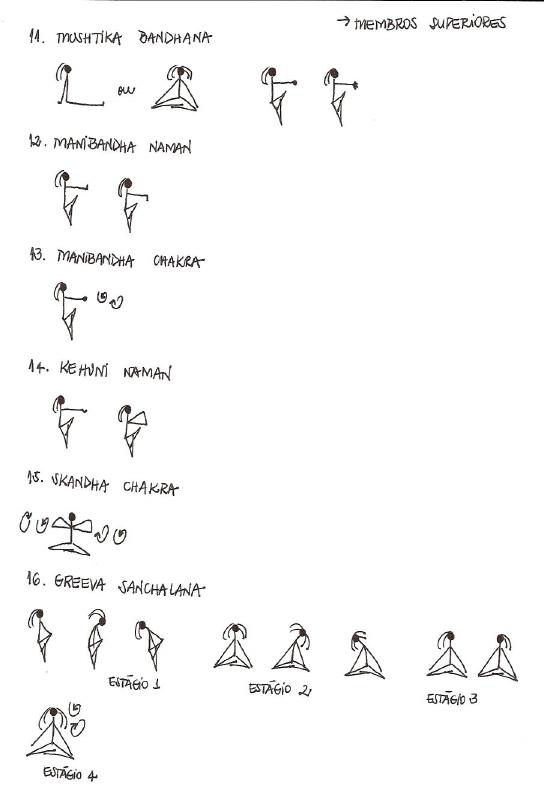 → MEMBROS SUPERIORES
11. MUSHTIKA BANDHANA
ou
12. MANIBANDHA NAMAN
13. MANIBANDHA CHAKRA
14. KEHUNI NAMAN
15. SKANDHA CHAKRA
16. GREEVA SANCHALANA
ESTÁGIO 1
ESTÁGIO 2
ESTÁGIO 3
ESTÁGIO 4